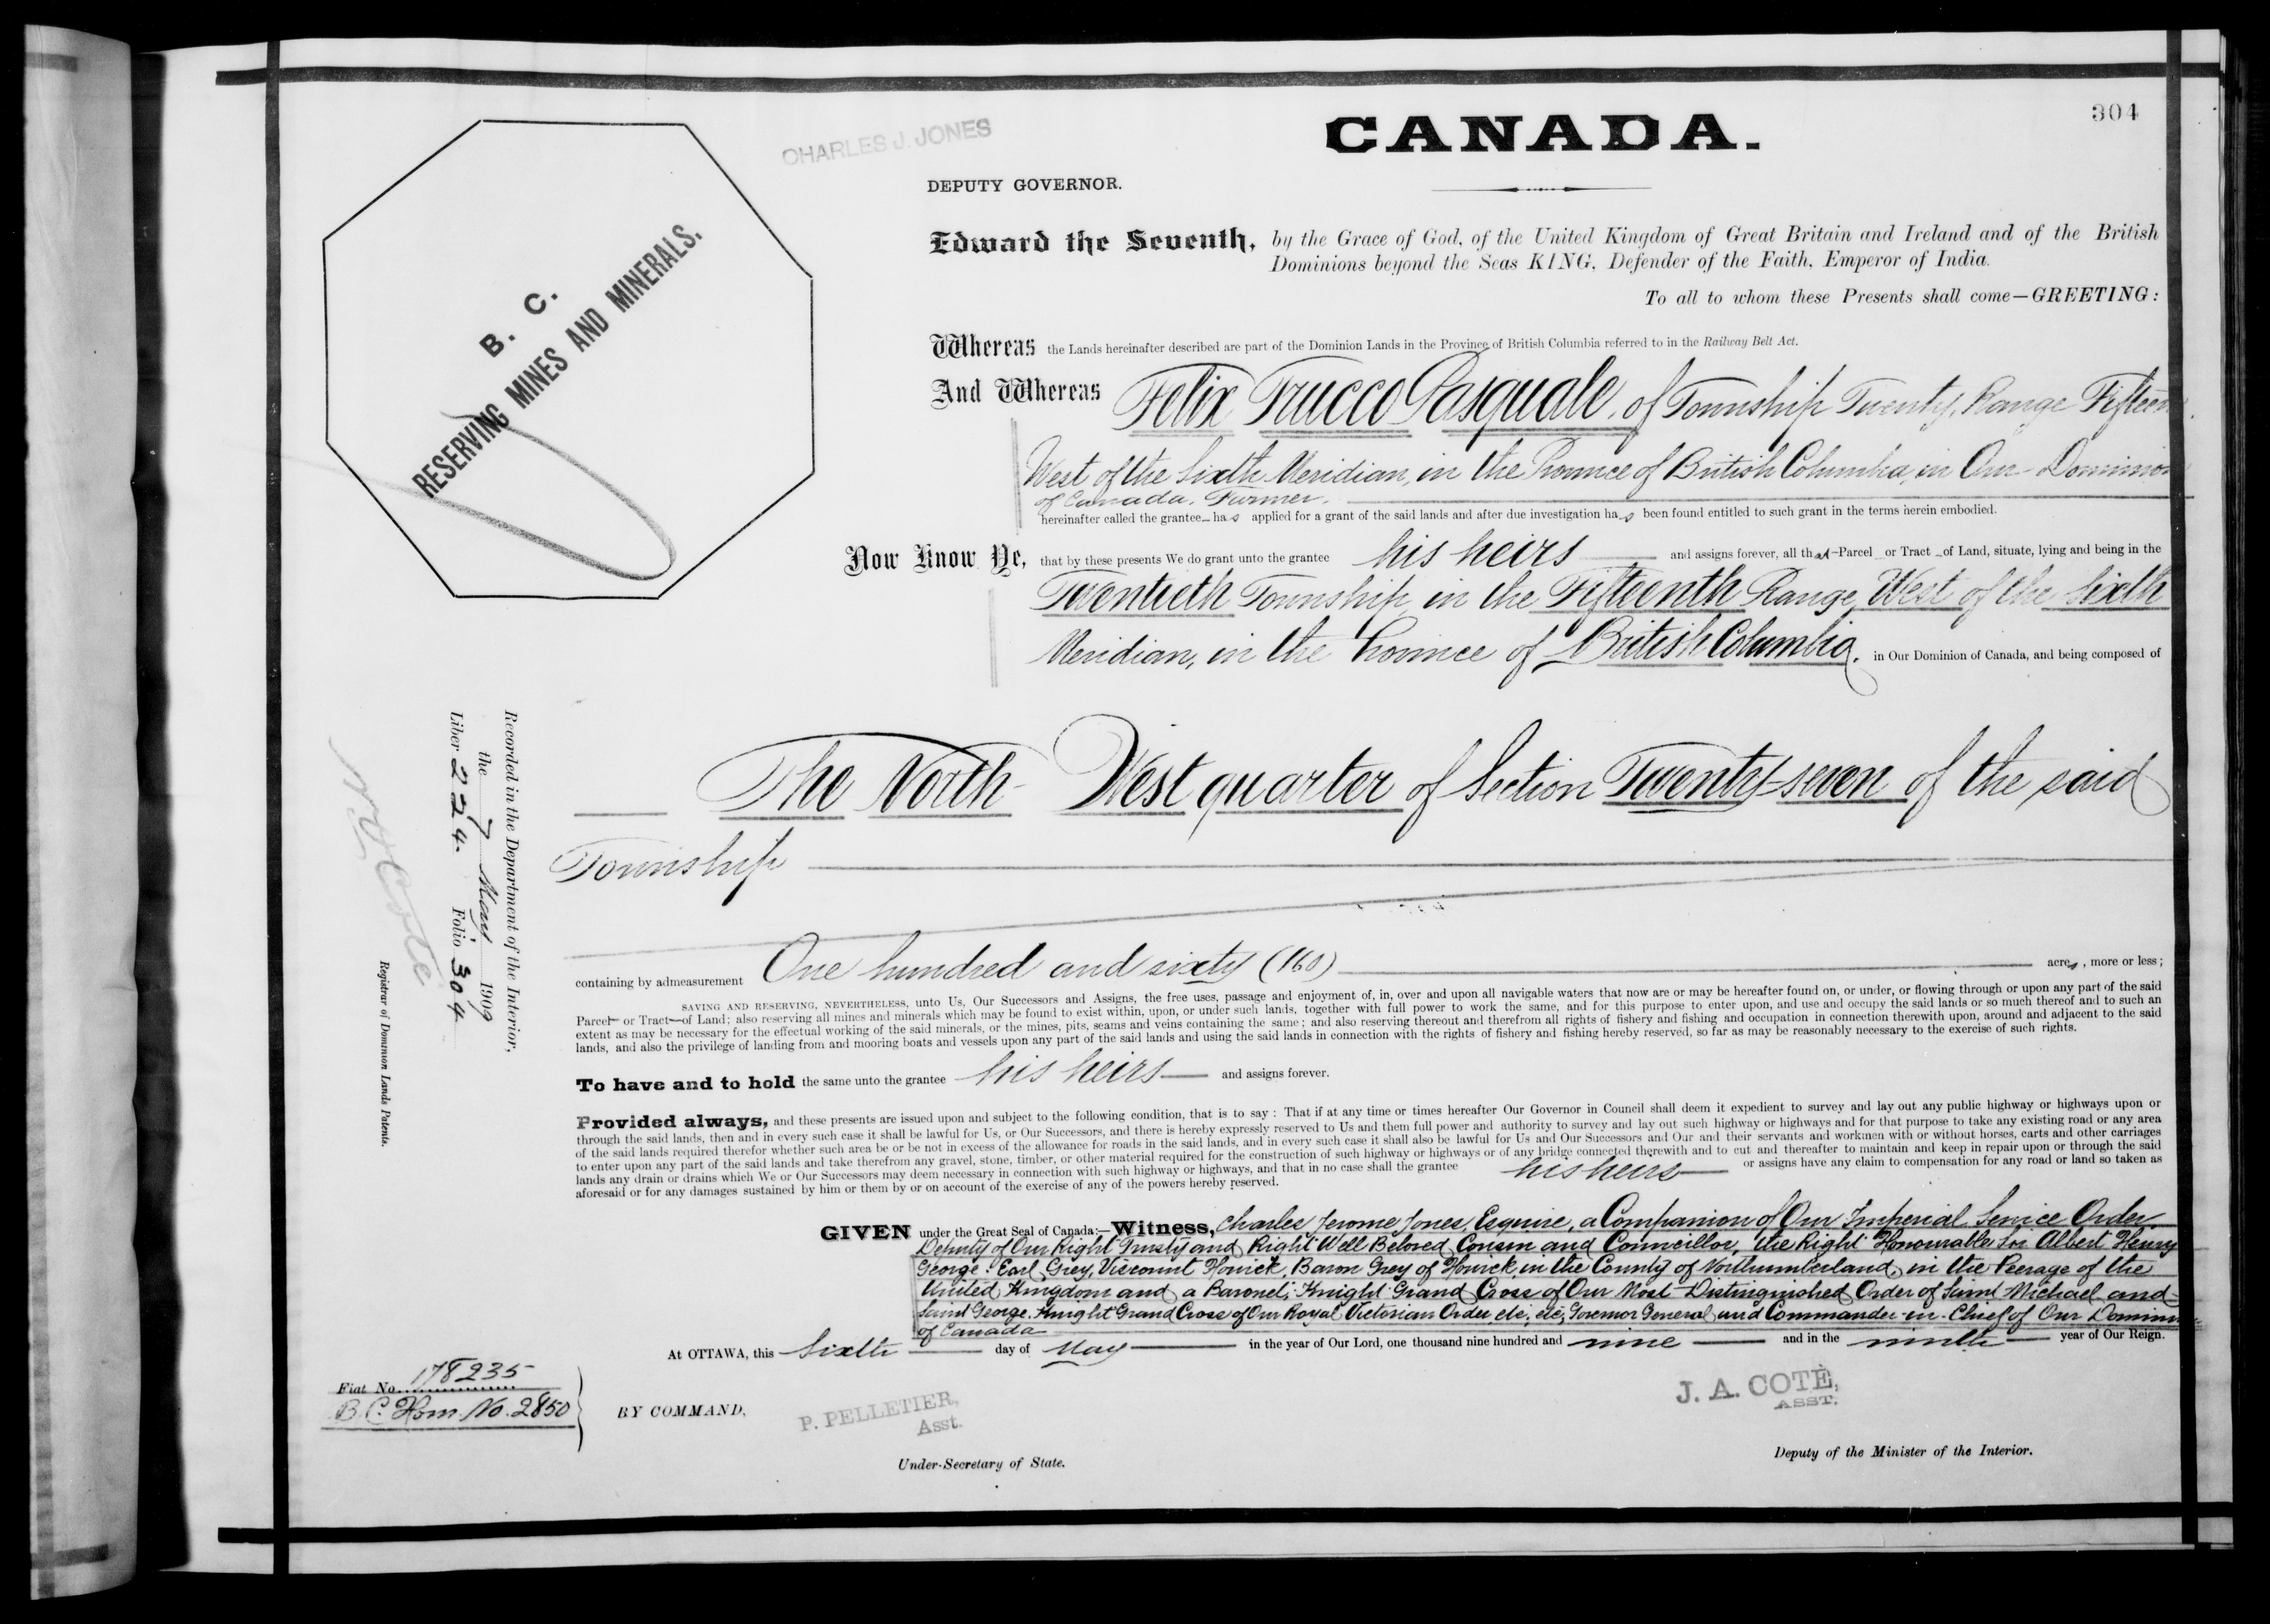 304
CHARLES J. JONES
CANADA.
DEPUTY GOVERNOR.
B. C.
RESERVING MINES AND MINERALS.
Edward the Seventh, by the Grace of God, of the United Kingdom of Great Britain and Ireland and of the British
Dominions beyond the Seas KING, Defender of the Faith, Emperor of India.
To all to whom these Presents shall come—GREETING:
Whereas the Lands hereinafter described are part of the Dominion Lands in the Province of British Columbia referred to in the Railway Belt Act.
And Whereas Felix Trucco Pasquale, of Township Twenty, Range Fifteen
West of the Sixth Meridian, in the Province of British Columbia, in Our Dominion
of Canada, Farmer,
hereinafter called the grantee has applied for a grant of the said lands and after due investigation has been found entitled to such grant in the terms herein embodied.
Now Know Ye, that by these presents We do grant unto the grantee his heirs and assigns forever, all that Parcel or Tract of Land, situate, lying and being in the
Twentieth Township, in the Fifteenth Range, West of the Sixth
Meridian, in the Province of British Columbia, in Our Dominion of Canada, and being composed of
The North-West quarter of Section Twenty-seven of the said
Township
containing by admeasurement One hundred and sixty (160) acres, more or less;
SAVING AND RESERVING, NEVERTHELESS, unto Us, Our Successors and Assigns, the free uses, passage and enjoyment of, in, over and upon all navigable waters that now are or may be hereafter found on, or under, or flowing through or upon any part of the said
Parcel or Tract of Land; also reserving all mines and minerals which may be found to exist within, upon, or under such lands, together with full power to work the same, and for this purpose to enter upon, and use and occupy the said lands or so much thereof and to such an
extent as may be necessary for the effectual working of the said minerals, or the mines, pits, seams and veins containing the same; and also reserving thereout and therefrom all rights of fishery and fishing and occupation in connection therewith upon, around and adjacent to the said
lands, and also the privilege of landing from and mooring boats and vessels upon any part of the said lands and using the said lands in connection with the rights of fishery and fishing hereby reserved, so far as may be reasonably necessary to the exercise of such rights.
To have and to hold the same unto the grantee his heirs and assigns forever.
Provided always, and these presents are issued upon and subject to the following condition, that is to say: That if at any time or times hereafter Our Governor in Council shall deem it expedient to survey and lay out any public highway or highways upon or
through the said lands, then and in every such case it shall be lawful for Us, or Our Successors, and there is hereby expressly reserved to Us and them full power and authority to survey and lay out such highway or highways and for that purpose to take any existing road or any area
of the said lands required therefor whether such area be or be not in excess of the allowance for roads in the said lands, and in every such case it shall also be lawful for Us and Our Successors and Our and their servants and workmen with or without horses, carts and other carriages
to enter upon any part of the said lands and take therefrom any gravel, stone, timber, or other material required for the construction of such highway or highways or of any bridge connected therewith and to cut and thereafter to maintain and keep in repair upon or through the said
lands any drain or drains which We or Our Successors may deem necessary in connection with such highway or highways, and that in no case shall the grantee his heirs or assigns have any claim to compensation for any road or land so taken as
aforesaid or for any damages sustained by him or them by or on account of the exercise of any of the powers hereby reserved.
GIVEN under the Great Seal of Canada:—Witness, Charles Jerome Jones, Esquire, a Companion of Our Imperial Service Order,
Deputy of Our Right Trusty and Right Well Beloved Cousin and Councillor, the Right Honourable Sir Albert Henry
George, Earl Grey, Viscount Howick, Baron Grey of Howick, in the County of Northumberland, in the Peerage of the
United Kingdom and a Baronet; Knight Grand Cross of Our Most Distinguished Order of Saint Michael and
Saint George, Knight Grand Cross of Our Royal Victorian Order, etc., etc., Governor General and Commander-in-Chief of Our Dominion
of Canada
At OTTAWA, this Sixth day of May in the year of Our Lord, one thousand nine hundred and nine and in the ninth year of Our Reign.
Fiat No. 178235
B.C. Hom. No. 2850
BY COMMAND,
P. PELLETIER,
Asst.
Under-Secretary of State.
J. A. COTÉ,
ASST.
Deputy of the Minister of the Interior.
Recorded in the Department of the Interior,
the 7 May 1909
Liber 224. Folio 304
N O Coté
Registrar of Dominion Lands Patents.